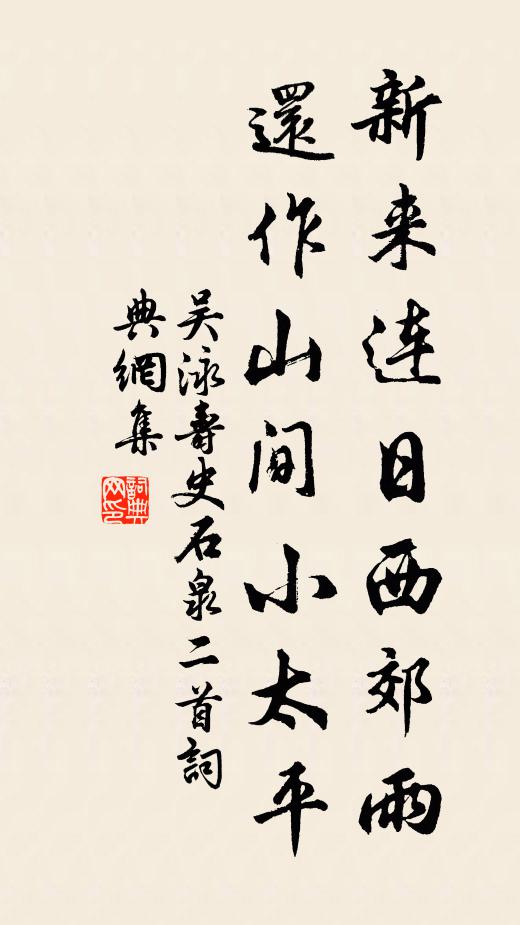 新来连日西郊雨
還作山间小太平
吴泳壽史石泉二首詞
典網集
詞典
网印